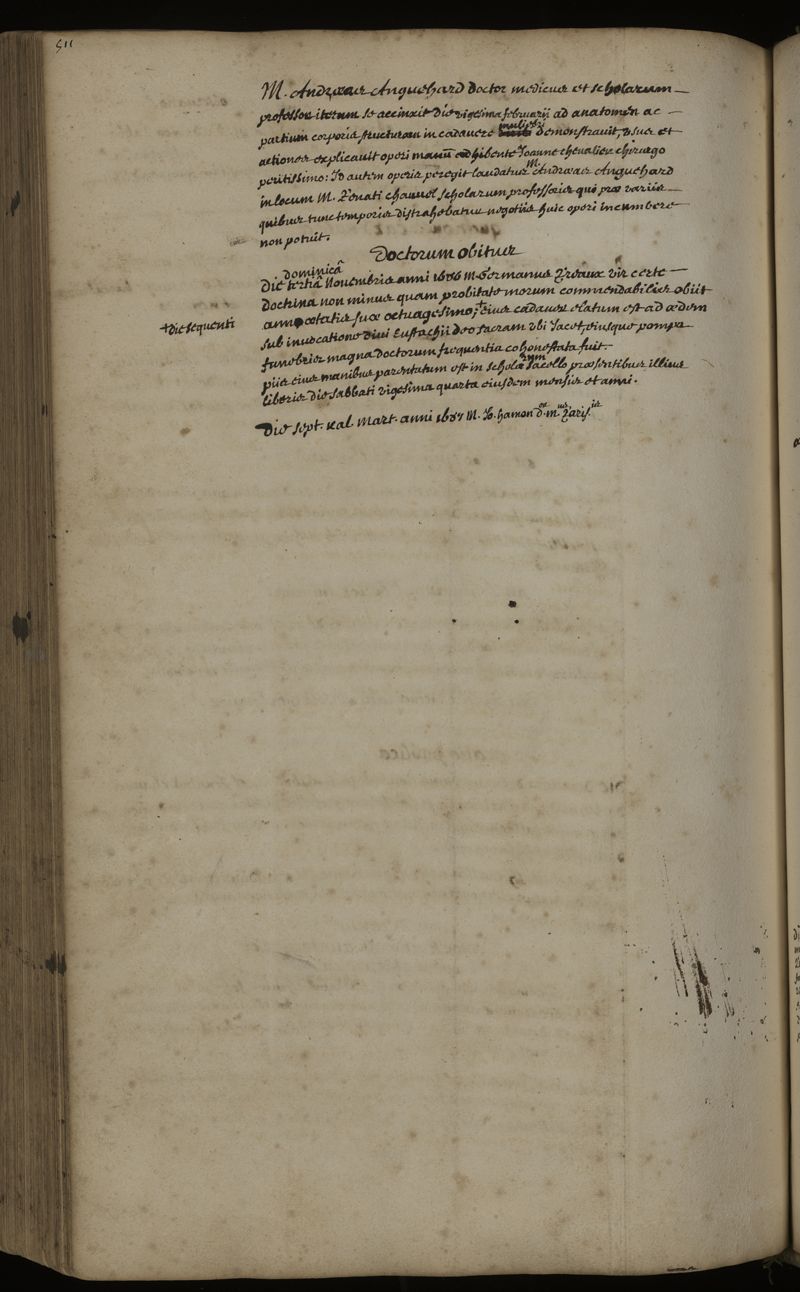 511
M. Andræas Anguehard doctor medicus et scholarum
professor iterum se accinxit die vigesima februarii ad anatomen ac
partium corporis structuram in cadavere muliebri demonstravit, usus et
actiones explicavit operi manum adhibente Joanne chevalier chirurgo
peritissimo: Id autem operis peregit laudatus M. Andræas Anguehard
in locum M. Renati chauvel scholarum professoris qui præ variis
quibus tunc temporis distrahebatur negotiis huic operi incumbere
non potuit.
Doctorum obitus
Die dominicâ tertiâ Novembris anni 1686 M. Germanus vir certe
doctrina non minus quam probitate morum commendabilis obiit
anno ætatis suæ octuagesimo, + eius cadaver elatum est ad ædem
+ die sequenti
sub invocatione divi Eustachii deo sacram ubi Jacet, eiusque pompa
funebris magna doctorum frequentia cohonestata fuit.
piis eius manibus parentatum est in scholarum sacello præsentibus illius
liberis die sabbati vigesima quarta eiusdem mensis et anni.
Die sept. kal. Mart. anni 1687 M. Jo. hamon d. m. Paris.